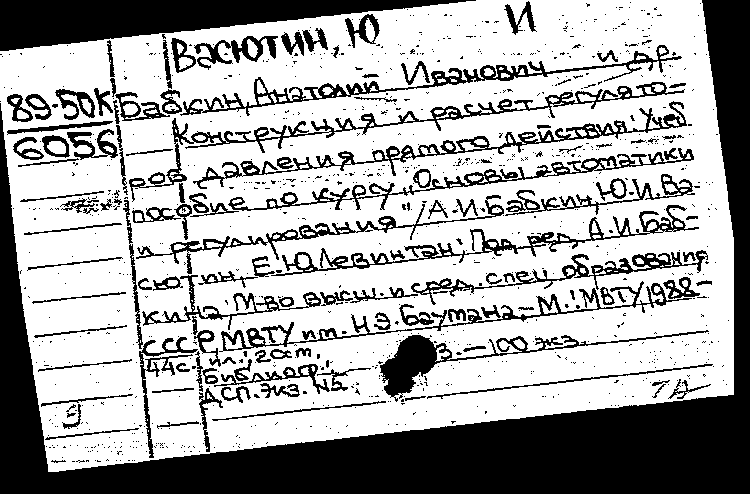 Васютин, Ю И
89-50К
6056
Бабкин, Анатолий Иванович и др.
Конструкция и расчет регулято-
ров давления прямого действия: Учеб
пособие по курсу „Основы автоматики
и регулирования" / А.И.Бабкин, Ю.И.Ва-
сютин, Е.Ю.Левинтан; Под ред. А.И.Баб-
кина; М-во высш. и сред. спец. образования
СССР, МВТУ им. Н.Э.Баумана.- М.: МВТУ, 1988-
44с. ил.; 20см.
з.—100 экз.
Библиогр.:
ДСП. Экз. №